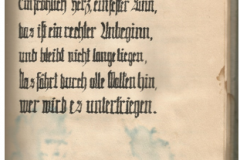 Ein fröhlich Herz, ein fester Sinn,
das ist ein rechter Anbeginn,
und bleibt nicht lange liegen,
Das fährt durch alle Wolken hin,
wer wird es unterkriegen.